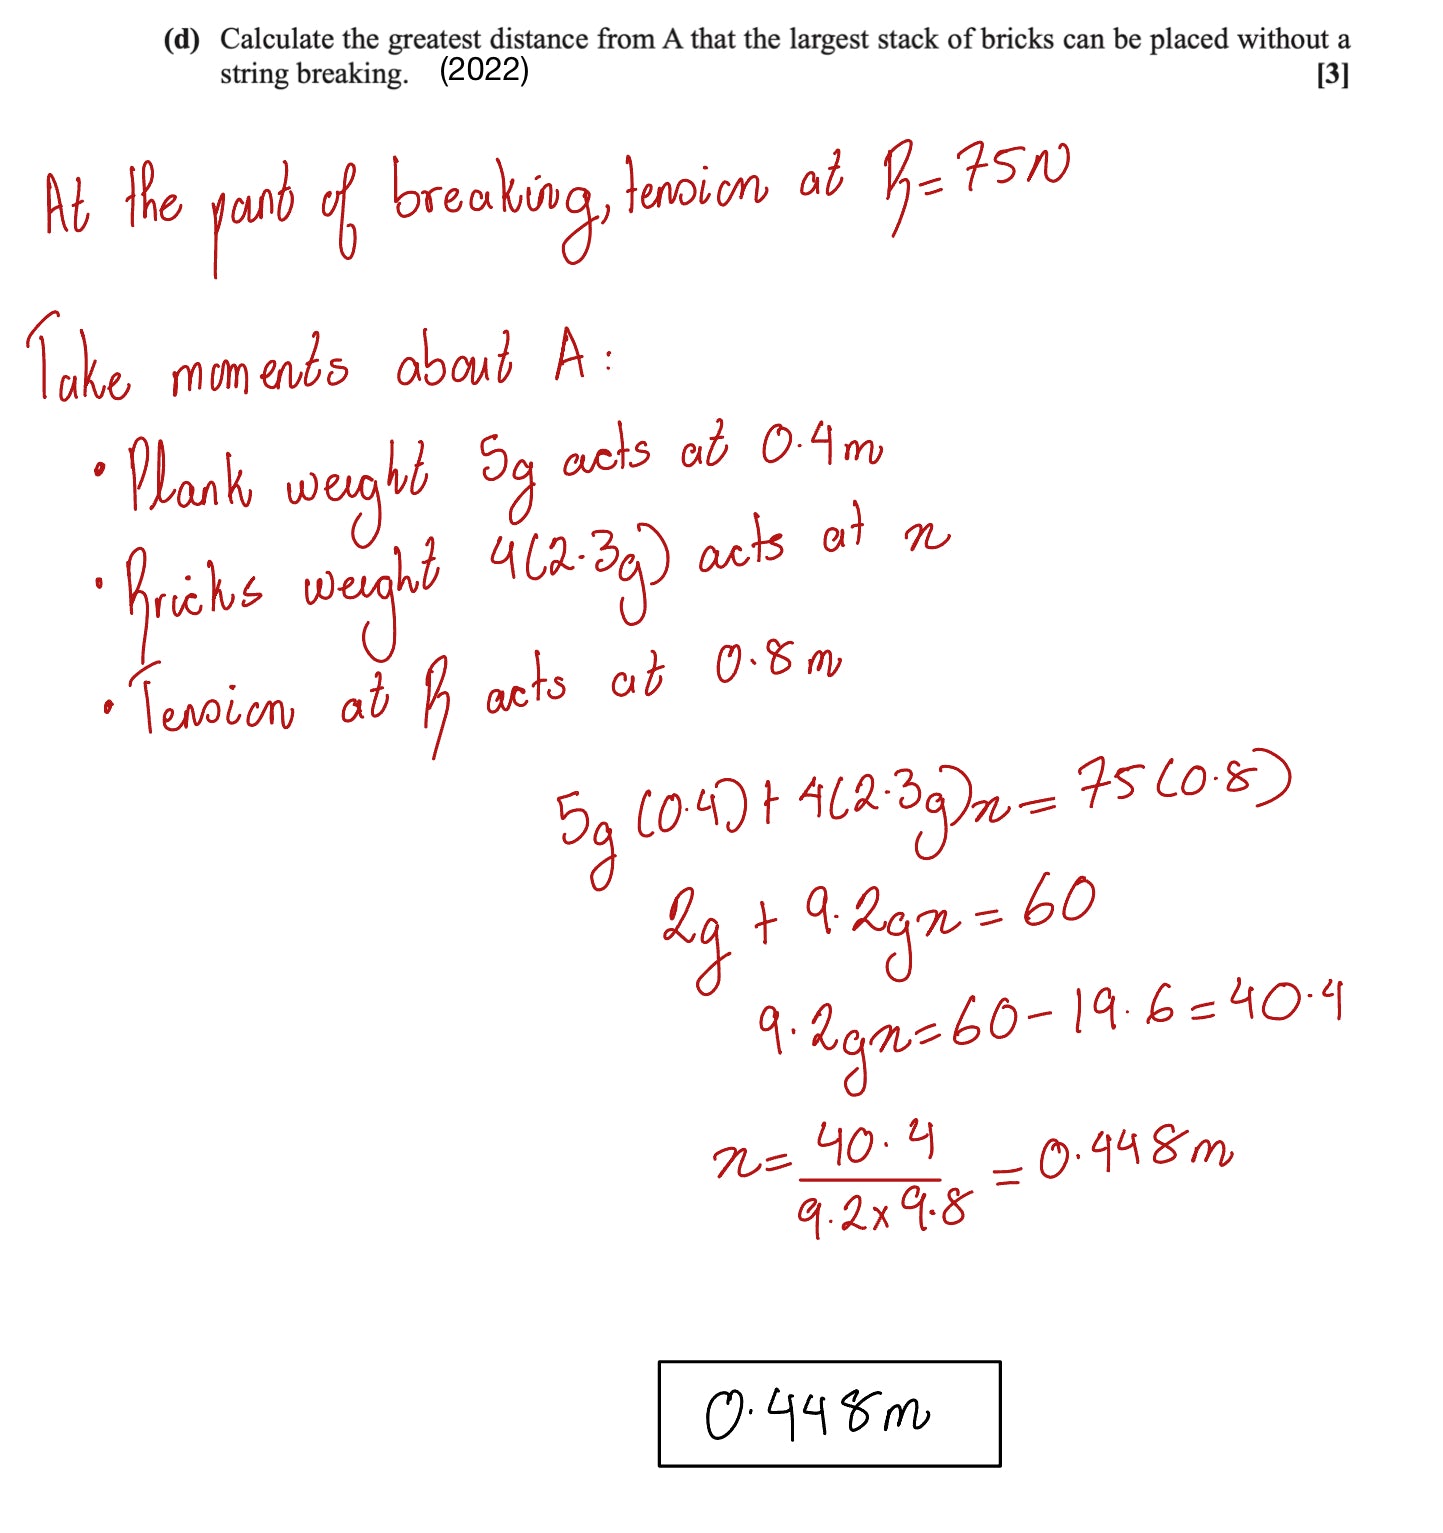 (d) Calculate the greatest distance from A that the largest stack of bricks can be placed without a
string breaking. (2022) [3]
At the point of breaking, tension at B = 75N
Take moments about A:
• Plank weight 5g acts at 0.4m
• Bricks weight 4(2.3g) acts at x
• Tension at B acts at 0.8m
5g(0.4) + 4(2.3g)x = 75(0.8)
2g + 9.2gx = 60
9.2gx = 60 - 19.6 = 40.4
x = 40.4 / 9.2 x 9.8 = 0.448m
0.448m